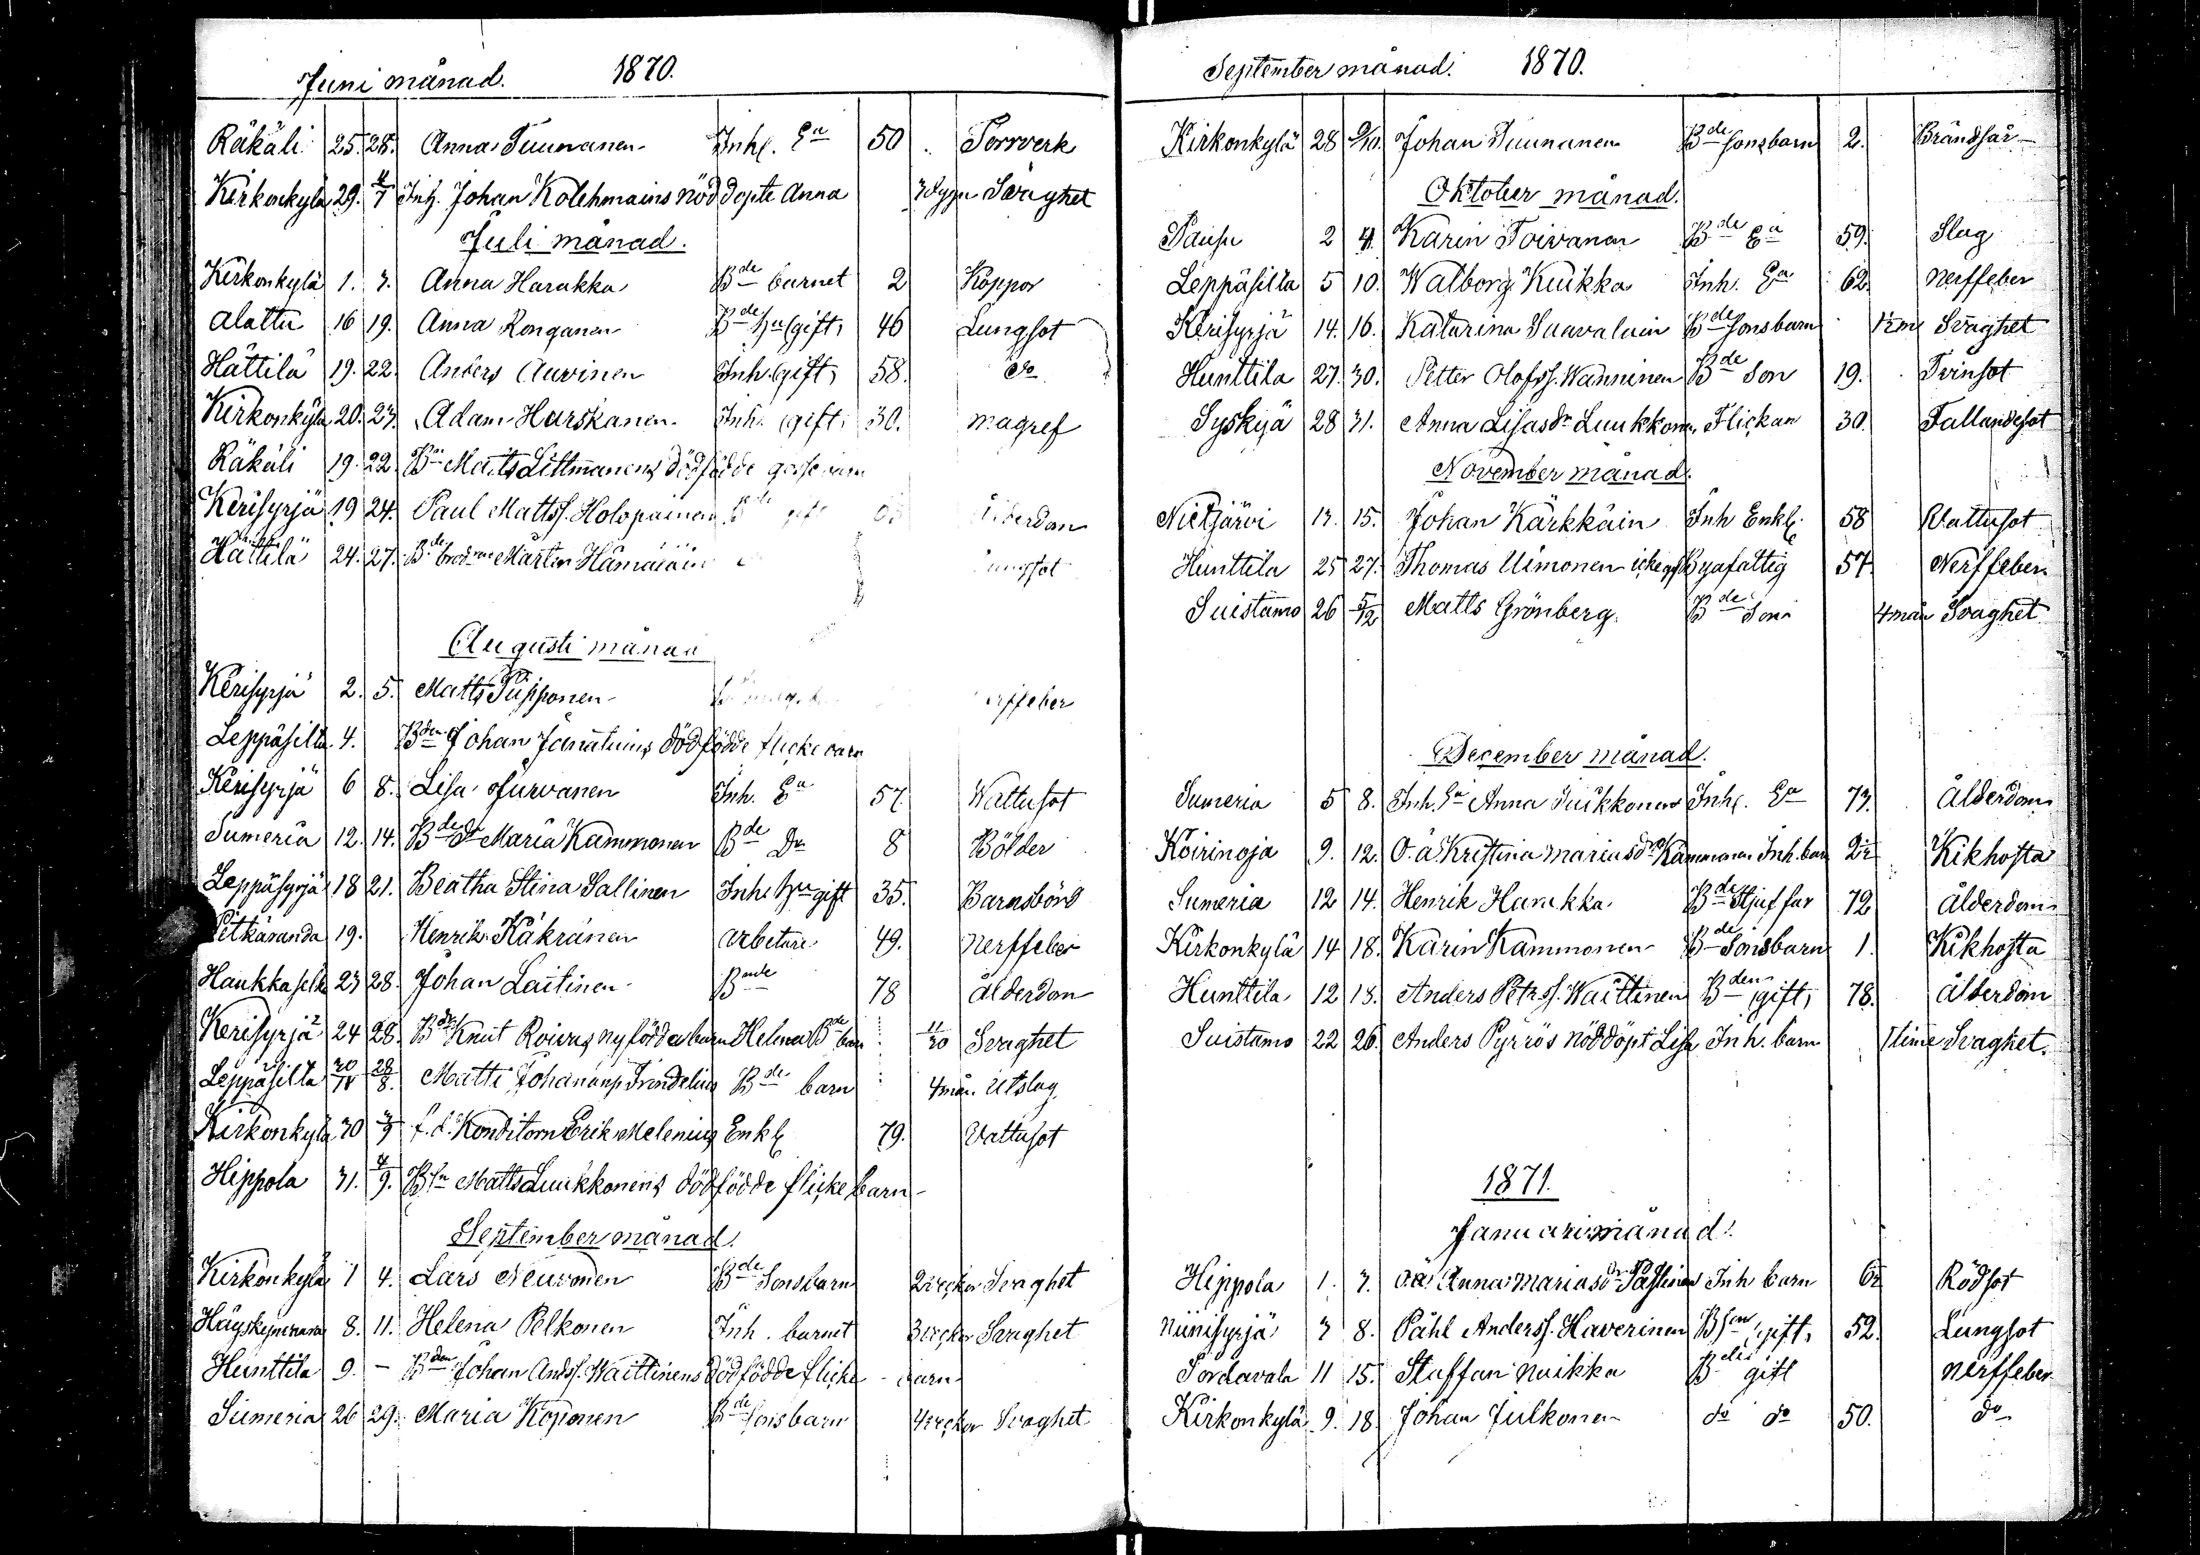 Juni månad. 1870.
Räkäli 25. 28. Anna Tuunanen Inh. Ea 50 Torrverk
Kirkonkylä 29. 4/7 Inh. Johan Kolehmains nöddopte Anna 3 dygn Svaghet
Juli månad.
Kirkonkylä 1. 3. Anna Harakka Bde barnet 2 Koppor
Alattu 16 19. Anna Ronganen Bde hu gift 46 Lungsot
Hättilä 19. 22 Anders Auvinen Inh. gift 58. do
Kirkonkylä 20. 23. Adam Hurskanen Inh. gift 30. magref
Räkäli 19. 22. Bn Matts Littmanens dödfödde gosse barn
Kerisyrjä 19 24. Paul Mattss. Holopainen Ålderdom
Hättilä 24. 27. Mårten Hämäläin Lungsot
Augusti månad
Kerisyrjä 2. 5. Matts Pipponen erffeber
Leppäsilta 4. Bden Johan Jänatuins dödfödde flicke barn
Kerisyrjä 6 8. Lisa Jurvanen Inh. Ea 57 Wattusot
Sumeria 12. 14. Bde Dr Maria Kammonen Bde Dr 8 Bölder
Leppäsyrjä 18 21. Beatha Stina Sallinen Inh. hu gift 35. Barnsbörd
Pitkäranda 19. Henrik Käkränen arbetare 49. Nerffeber
Haukkaselkä 23 28. Johan Laitinen Bnde 78 Ålderdom
Kerisyrjä 24 28. Bde Knut Roivas nyfödda barn Helena Bde barn 11/20 Svaghet
Leppäsilta 28/8. Matti Johananp Trindelius Bde barn 4 mån. Utslag
Kirkonkylä 30 3/9 f.d. Konditorn Erik Melenius Enkl 79. Vattusot
Hippola 31. 4/9. Bsn Matts Luukkonens dödfödde flicke barn
September månad.
Kirkonkylä 1 4. Lars Neuvonen Bde Sonsbarn 2 veckor Svaghet
8. 11. Helena Pelkonen Inh. barnet 3 veckor Svaghet
Hunttila 9. – Bden Johan Andss. Waittinens dödfödde flicke barn
Sumeria 26 29. Maria Koponen Bde Sonsbarn 4 veckor Svaghet
September månad. 1870.
Kirkonkylä 28 2/10. Johan Tuunanen Bde Sonsbarn 2. Brändsår
Oktober månad.
Pausu 2 4. Karin Toivanen Bde Ea 59. Slag
Leppäsilta 5 10. Walborg Kuikka Inh. Ea 62. Nerffeber
Kerisyrjä 14. 16. Katarina Suavalain Bde Sonsbarn 1/2 m Svaghet
Hunttila 27. 30. Petter Olofss. Wänninen Bde Son 19. Tvinsot
Syskyä 28 31. Anna Lisasdr Luukkonen Flickan 30. Fallandesot
November månad.
Nietjärvi 13. 15. Johan Kärkkäin Inh Enkl. 58 Wattusot
Hunttila 25 27. Thomas Uimonen icke gift Byafattig 57. Nerffeber
Suistamo 26 5/12 Matts Grönberg. Bde Son 4 mån Svaghet
December månad.
Sumeria 5 8. Inh. Ea Anna Inh. Ea 73. Ålderdom
Koirinoja 9. 12. O.ä Kristina Mariasdr Kammonen Inh. barn 2 1/2 Kikhosta
Sumeria 12 14. Henrik Harakka Bde Stjuffar 72 Ålderdom
Kirkonkylä 14 18. Karin Kammonen Bde Sonsbarn 1. Kikhosta
Hunttila 12 18. Anders Petrss. Waittinen Bden gift, 78. Ålderdom
Suistamo 22 26. Anders Pyrrös nöddöpt Lisa Inh. barn 1 time Svaghet.
1871.
Januari månad.
Hippola 1. 3. O.ä Anna Mariasdr Passinen Inh barn 6/12 Rödsot
Niinisyrjä 3 8. Påhl Anderss. Haverinen Bson gift, 52. Lungsot
Sordavala 11 15. Staffan Naikka Bde gift Nerffeber
Kirkonkylä 9. 18. Johan Julkonen do do 50. do